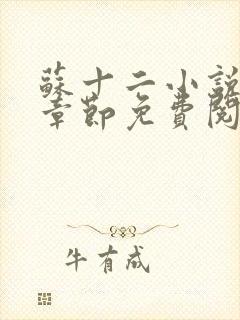 蘇十二小說
章節免費閱
牛有成